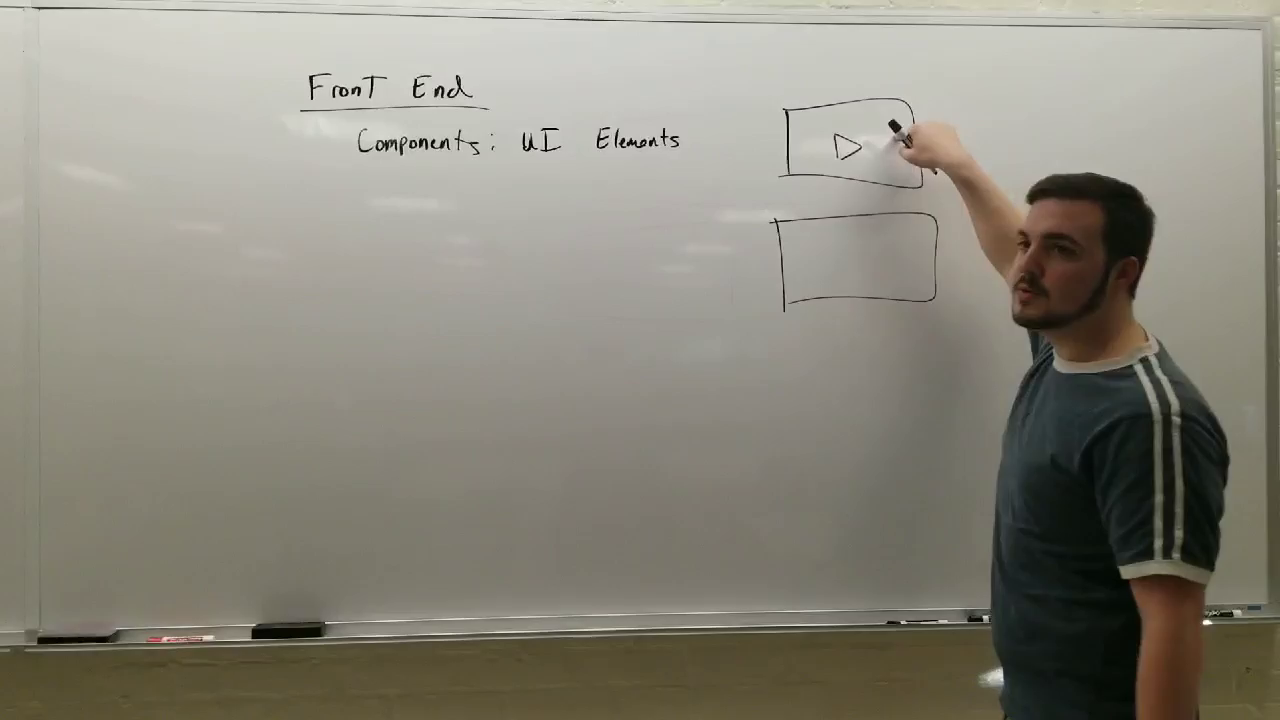 Front End
Components: UI Elements